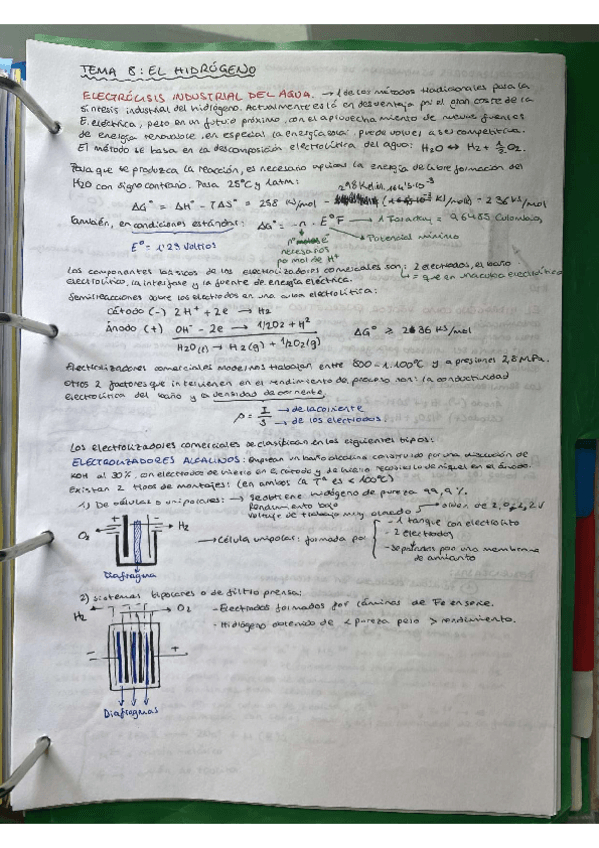 TEMA 8: EL HIDRÓGENO
ELECTRÓLISIS INDUSTRIAL DEL AGUA. → 1 de los métodos tradicionales para la
síntesis industrial del hidrógeno. Actualmente está en desventaja por el gran coste de la
E. eléctrica, pero en un futuro próximo, con el aprovechamiento de nuevas fuentes
de energía renovable, en especial la energía solar puede volver a ser competitiva.
El método se basa en la descomposición electrolítica del agua: H2O ↔ H2 + 1/2 O2.
Para que se produzca la reacción, es necesario aplicar la energía de libre formación del
H2O con signo contrario. Para 25°C y 1 atm:
ΔG° = ΔH° - TΔS° = 258 KJ/mol - 298 Kelvin KJ/mol) = 236 KJ/mol
También, en condiciones estándar: ΔG° = -n · E°F → 1 Faraday = 96485 Culombios
E° = 1'23 voltios
nº moles e-
necesarios
por mol de H+
→ Potencial mínimo
Los componentes básicos de los electrolizadores comerciales son: 2 electrodos, el baño
electrolítico, la interfase y la fuente de energía eléctrica. = que en una cuba electrolítica
Semirreacciones sobre los electrodos en una cuba electrolítica:
Cátodo (-) 2H+ + 2e → H2
ánodo (+) OH- - 2e → 1/2O2 + H+
H2O(l) → H2(g) + 1/2O2(g)
ΔG° ≥ 236 KJ/mol
Electrolizadores comerciales modernos trabajan entre 800 - 1.100°C y a presiones 2,8 MPa.
Otros 2 factores que intervienen en el rendimiento de proceso son: la conductividad
electrolítica del baño y la densidad de corriente.
ρ = I/S → de la corriente
→ de los electrodos
Los electrolizadores comerciales se clasifican en los siguientes tipos:
ELECTROLIZADORES ALCALINOS: emplean un baño alcalino construido por una disolución de
KOH al 30%, con electrodos de hierro en el cátodo y de hierro recubierto de níquel en el ánodo.
Existen 2 tipos de montajes: (en ambos la Tª es < 100°C)
1) De células o unipolares: → se obtiene hidrógeno de pureza 99,9%.
Rendimiento bajo
Voltaje de trabajo muy elevado → orden de 2,0 - 2,2 V
O2
H2
→ Célula unipolar: formada por
- 1 tanque con electrolito
- 2 electrodos
- Separados por una membrana
de amianto
Diafragma
2) Sistemas bipolares o de filtro prensa:
H2
O2
- Electrodos formados por láminas de Fe en serie.
- Hidrógeno obtenido de < pureza pero > rendimiento.
Diafragmas